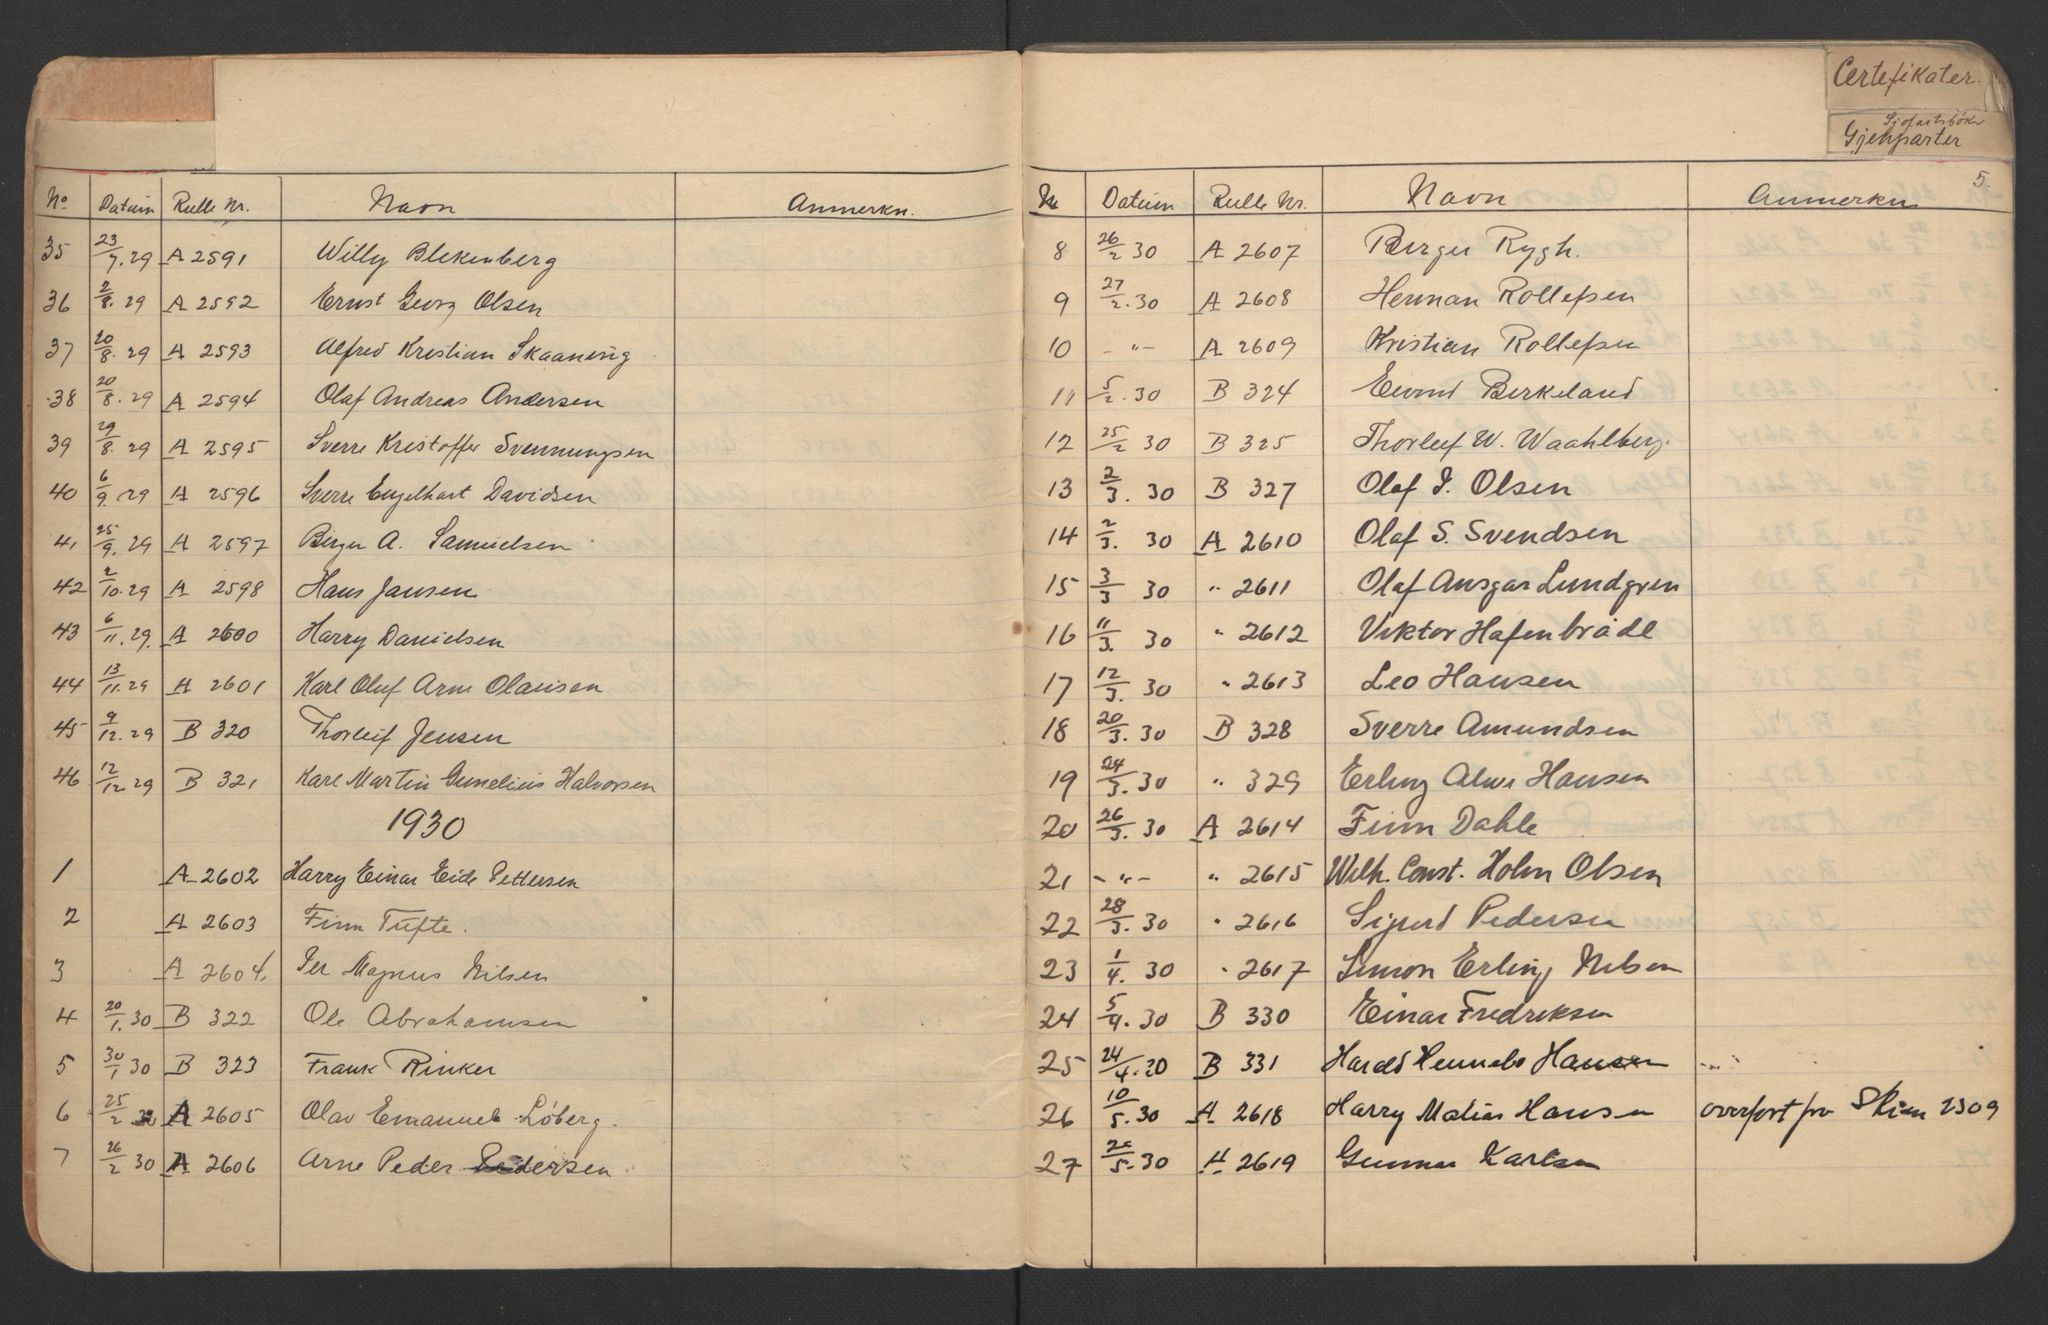 No Datum Rulle Nr. Navn Anmerkn.
35 23/7.29 A 2591 Willy Blekenberg
36 2/8.29 A 2592 Ernst Georg Olsen
37 20/8.29 A 2593 Alfred Kristian Skaaning
38 20/8.29 A 2594 Olaf Andreas Andersen
39 29/8.29 A 2595 Sverre Kristoffer Svennungsen
40 6/9.29 A 2596 Sverre Engelhart Davidsen
41 25/9.29 A 2597 Birger A. Samuelsen
42 2/10.29 A 2598 Hans Jansen
43 6/11.29. A 2600 Harry Danielsen
44 13/11.29 A 2601 Karl Oluf Arne Olausen
45 9/12.29 B 320 Thorleif Jensen
46 12/12 29 B 321 Karl Martin Gunelius Halvorsen
1930
1 A 2602 Harry Einar Eide Pettersen
2 A 2603 Finn Tufte.
3 A 2604. Per Magnus Nilsen
4 20/1.30 B 322 Ole Abrahamsen
5 30/1 30 B 323 Frank Rinker
6 25/2 A 2605 Olav Emanuel Löberg.
7 26/2 30 A 2606 Arne Peder Pedersen
Certefikater.
Sjøfartsbøker
Gjenparter
5.
Nr Datum Rulle Nr. Navn Anmerkn
8 26/2 30 A 2607 Birger Rygh.
9 27/2.30 A 2608 Herman Rollefsen
10 -"- A 2609 Kristian Rollefsen
11 5/2.30 B 324 Eivind Birkeland
12 25/2 30 B 325 Thorleif W. Waahlberg.
13 2/3.30 B 327 Olaf J. Olsen
14 2/3.30 A 2610 Olaf S. Svendsen
15 3/3 30 " 2611 Olaf Ansgar Lundgren
16 11/3.30 " 2612 Viktor Hafenbrådl
17 12/3.30 " 2613 Leo Hansen
18 20/3.30 B 328 Sverre Amundsen
19 24/3.30 " 329 Erling Alwi Hansen
20 26/3.30 A 2614 Finn Dahle
21 -"- " 2615 Wilh. Const. Holm Olsen
22 28/3.30 " 2616 Sigurd Pedersen
23 1/4.30 " 2617 Simon Erling Nilsen
24 5/4.30 B 330 Einar Fredriksen
25 24/4.30 B 331 Harald Hansen
26 10/5.30 A 2618 Harry Matias Hansen overført fra Skien 2309
27 20/5.30 A 2619 Gunnar Karlsen